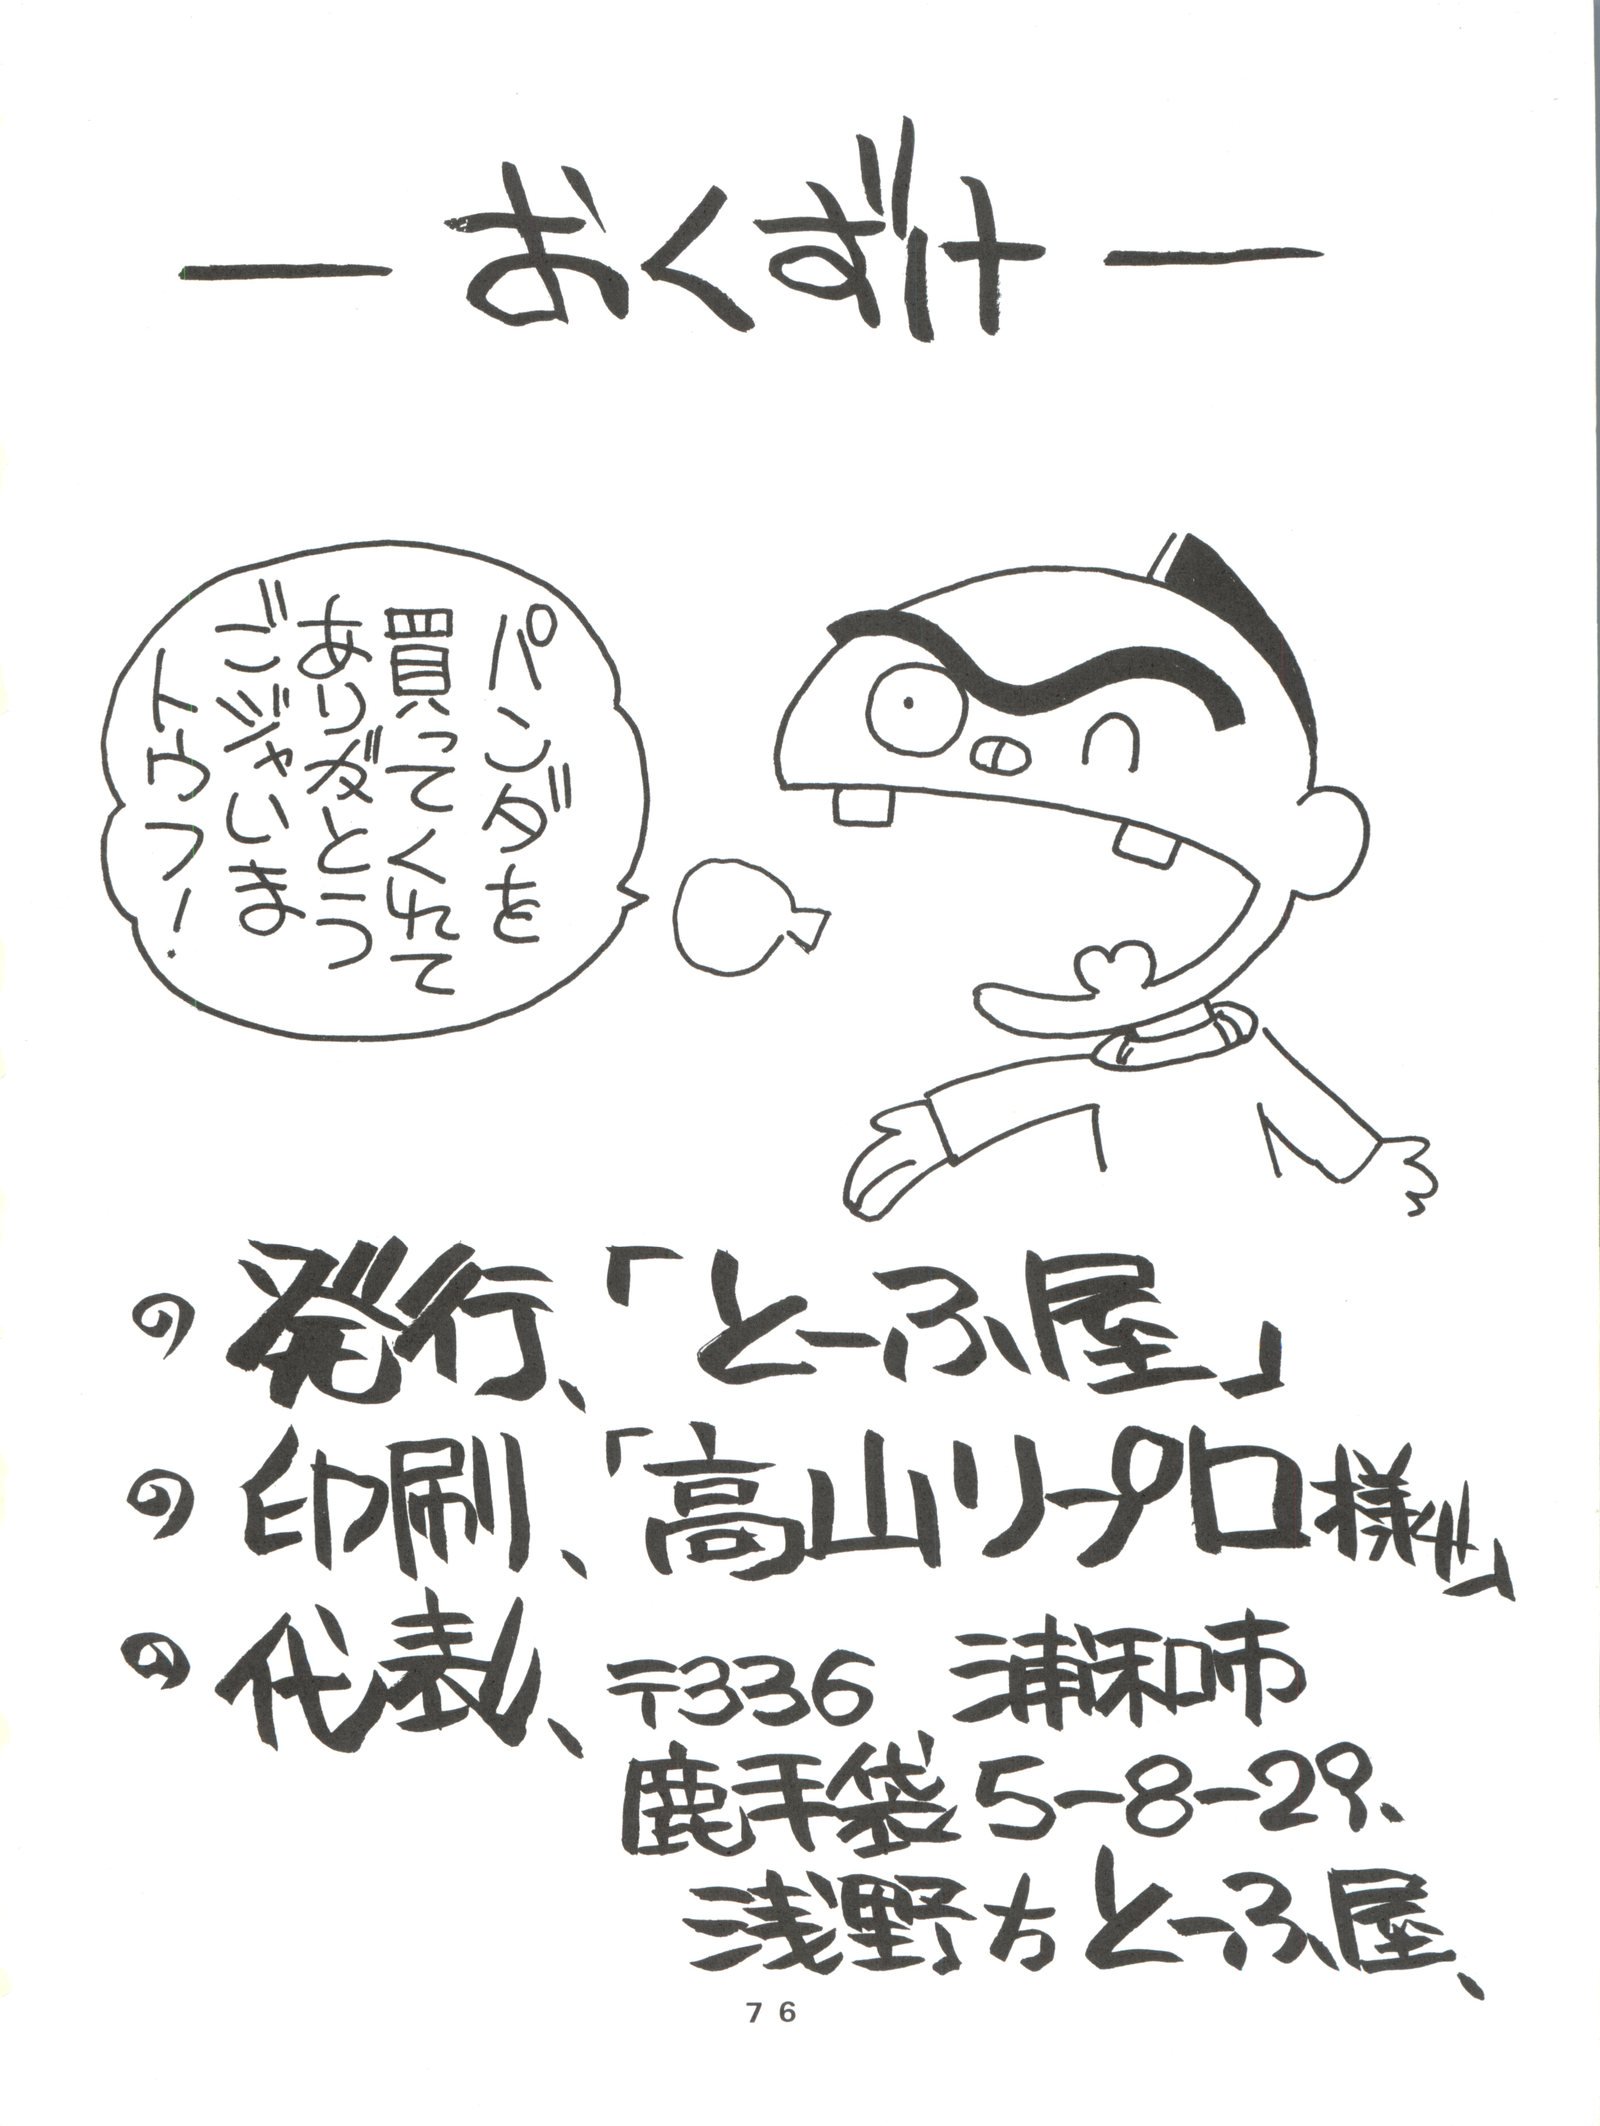 おくずけ
パンダを
買ってくれて
ありがとう
ごジャいま
トウフ!
発行、「とーふ屋」
印刷、「高山リープロ様」
代表、〒336 浦和市
鹿手袋5-8-29、
浅野方とーふ屋、
76